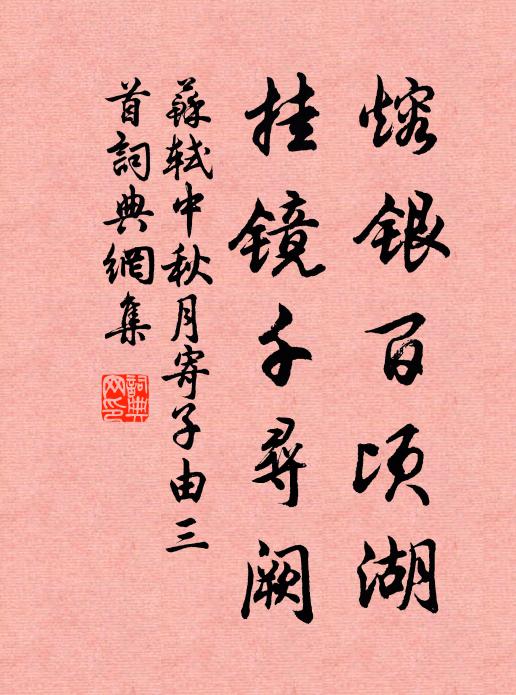 熔银百顷湖
挂镜千寻阙
蘇軾中秋月寄子由三
首詞典網集
詞典
网印